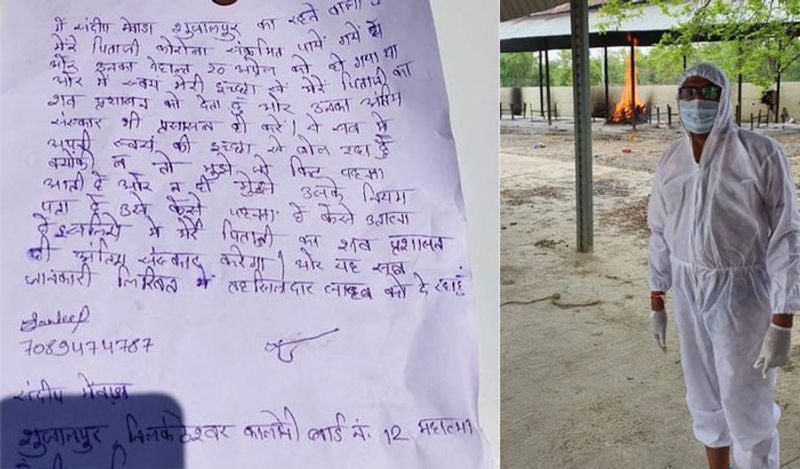 मैं संदीप मेवाडा शुजालपुर का रहने वाला
मेरे पिताजी कोरोना संक्रमित पायें गये थे
और उनका देहान्त 20 अप्रेल को हो गया था
और में स्वयं मेरी इच्छा से मेरे पिताजी का
शव प्रशासन को देता हुं और उनका अंतिम
संस्कार भी प्रशासन ही करें। ये सब में
अपनी स्वयं की इच्छा से बोल रहा हुँ
क्योंकी न तो मुझे पी पी किट पहनना
आती है और न ही मुझे उसके नियम
पता है उसे कैसे पहनना है कैसे उतारना
है इसलिये में मेरे पिताजी का शव प्रशासन
ही अंतिम संस्कार करेगा। और यह सूब
जानकारी लिखित में तहसिलदार साहब को दे रहा हुं
Sandeep
7089474787
संदीप मेवाडा
शुजालपुर, निलकंठेश्वर कालोनी वार्ड नं. 12 महात्मा